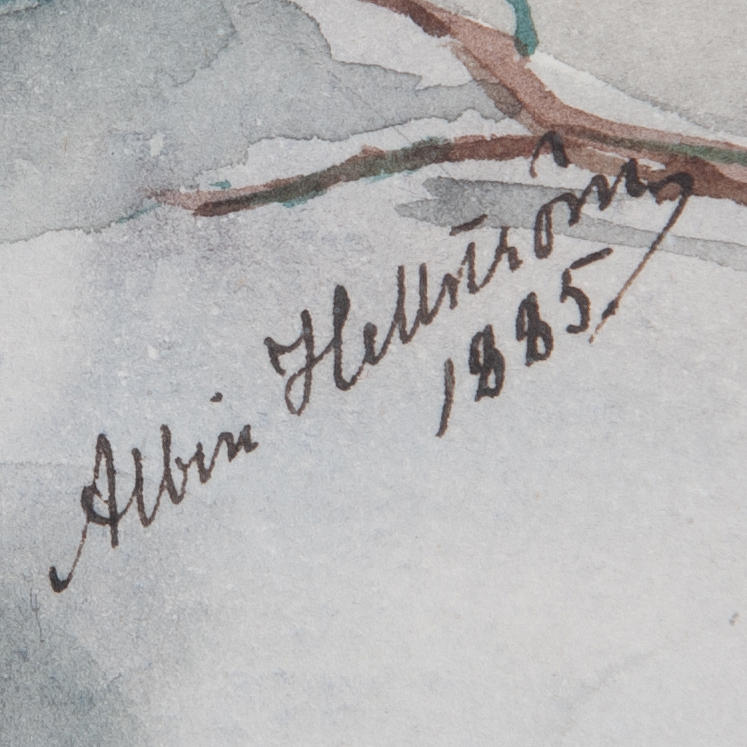 Albin Hellström
1885